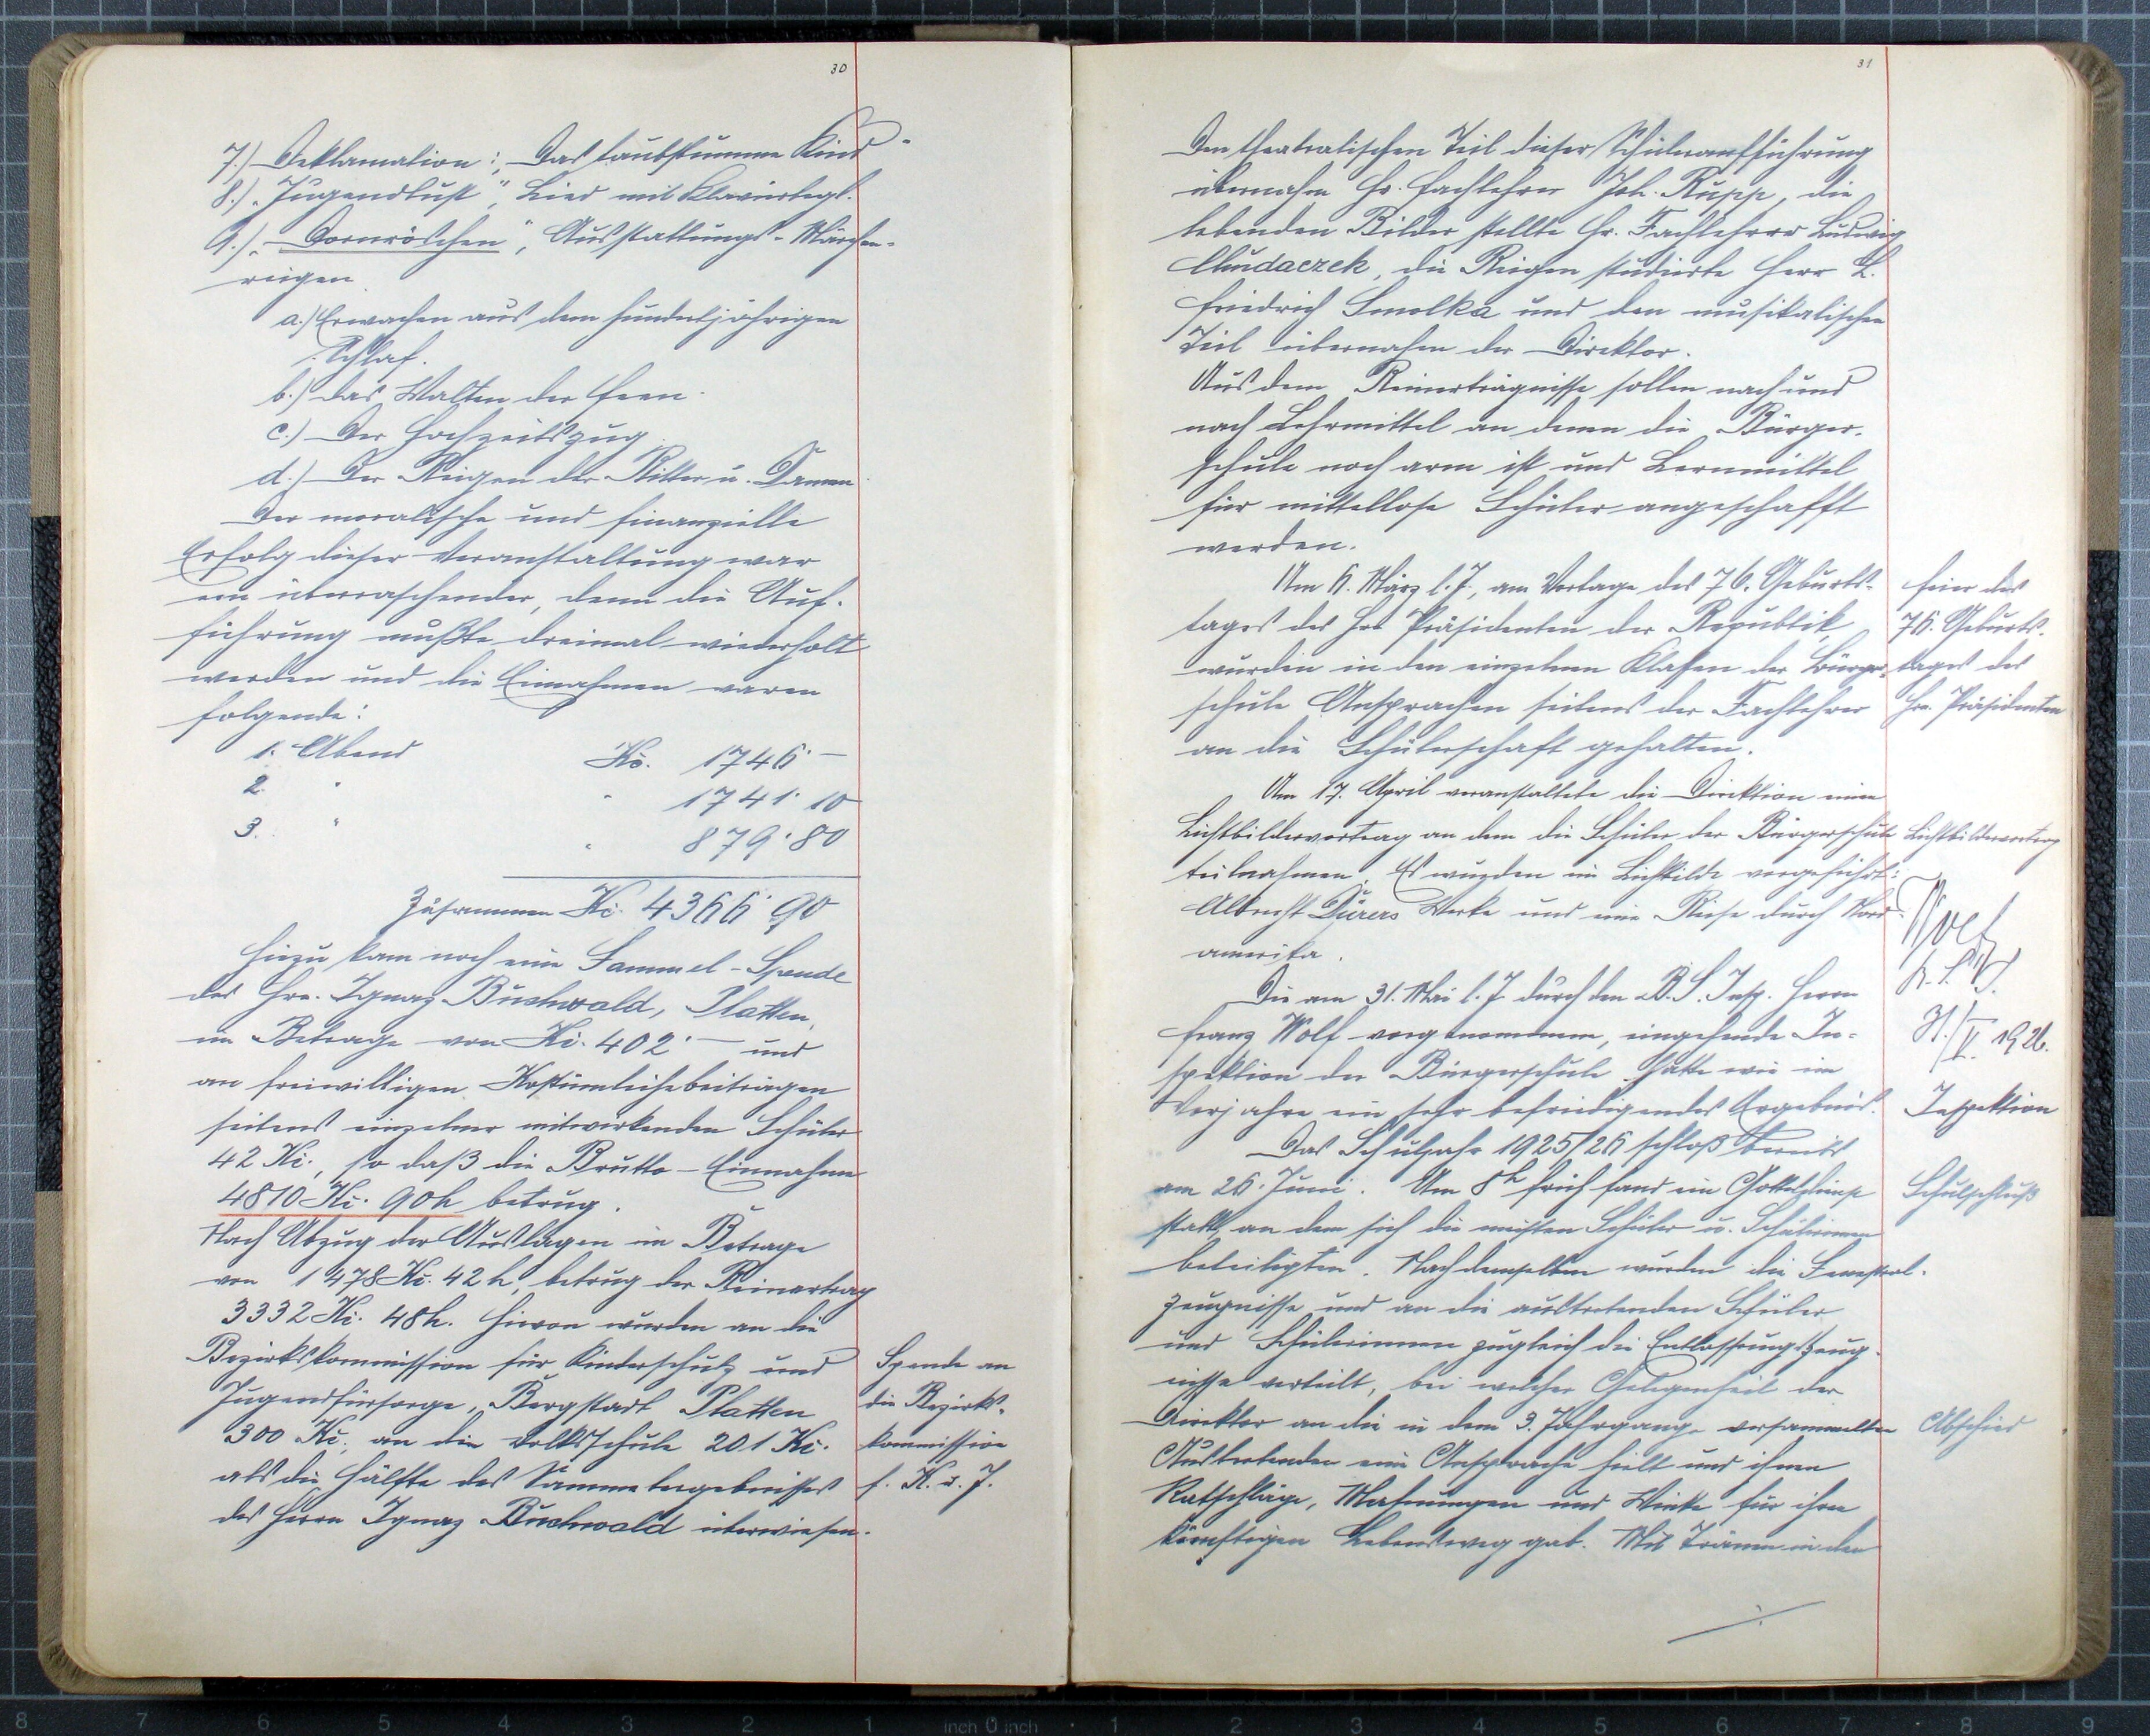 30
7.) Deklamation: „Das taubstumme Kind"
8.) „Jugendlust", Lied mit Klavierbegl.
9.) „Dornröschen", Ausstattungs-Märchen-
reigen.
a.) Erwachen aus dem hundertjährigen
Schlaf.
b.) Das Walten der Feen.
c.) Der Hochzeitszug.
d.) Der Reigen der Ritter u. Damen.
Der moralische und finanzielle
Erfolg dieser Veranstaltung war
ein überraschender, denn die Auf-
führung mußte dreimal wiederholt
werden und die Einnahmen waren
folgende:
1. Abend Kč. 1746·—
2. " " 1741·10
3. " " 879·80
Zusammen Kč. 4366·90
Hiezu kam noch eine Sammel-Spende
des Hrn. Ignaz Buchwald, Platten,
im Betrage von Kč. 402·— und
an freiwilligen Kostümleihebeiträgen
seitens einzelner mitwirkenden Schüler
42 Kč., so daß die Brutto-Einnahme
4810 Kč. 90h betrug.
Nach Abzug der Auslagen im Betrage
von 1478 Kč. 42h, betrug der Reinertrag
3332 Kč. 48h. Hievon wurden an die
Bezirkskommission für Kinderschutz und
Jugendfürsorge, Bergstadt Platten
300 Kč., an die Volksschule 201 Kč.
als die Hälfte des Sammelergebnisses
des Herrn Ignaz Buchwald überwiesen.
Spende an
die Bezirks-
kommission
f. K. u. J.
31
Den theatralischen Teil dieser Schüleraufführung
übernahm Hr. Fachlehrer Joh. Rupp, die
lebenden Bilder stellte Hr. Fachlehrer Ludwig
Chudaczek, die Reigen studierte Herr L.
Friedrich Smolka und den musikalischen
Teil übernahm der Direktor.
Aus dem Reinerträgnisse sollen nach und
nach Lehrmittel an denen die Bürger-
schule noch arm ist und Lernmittel
für mittellose Schüler angeschafft
werden.
Am 6. März l. J., am Vortage des 76. Geburts-
tages des Hrn Präsidenten der Republik,
wurden in den einzelnen Klassen der Bürger-
schule Ansprachen seitens der Fachlehrer
an die Schülerschaft gehalten.
Feier des
76. Geburts-
tages des
Hrn. Präsidenten
Am 17. April veranstaltete die Direktion einen
Lichtbildervortrag an dem die Schüler der Bürgerschule
teilnahmen. Es wurden im Lichtbilde vorgeführt:
Albrecht Dürers Werke und eine Reise durch Nord-
amerika.
Lichtbildervortrag
Die am 31. Mai l. J. durch den B. S. Insp. Herrn
Franz Wolf vorgenommene, eingehende In-
spektion der Bürgerschule hatte wie im
Vorjahre ein sehr befriedigendes Ergebnis.
Wolf
31./V. 1926.
Inspektion
Das Schuljahr 1925/26 schloß bereits
am 26. Juni. Um 8h früh fand ein Gottesdienst
statt, an dem sich die meisten Schüler u. Schülerinnen
beteiligten. Nach demselben wurden die Semestral-
zeugnisse und an die austretenden Schüler
und Schülerinnen zugleich die Entlassungszeug-
nisse verteilt, bei welcher Gelegenheit der
Direktor an die in dem 3. Jahrgange versammelten
Austretenden eine Ansprache hielt und ihnen
Ratschläge, Mahnungen und Winke für ihren
künftigen Lebensweg gab. Mit Tränen in den
Schulschluß
Abschied